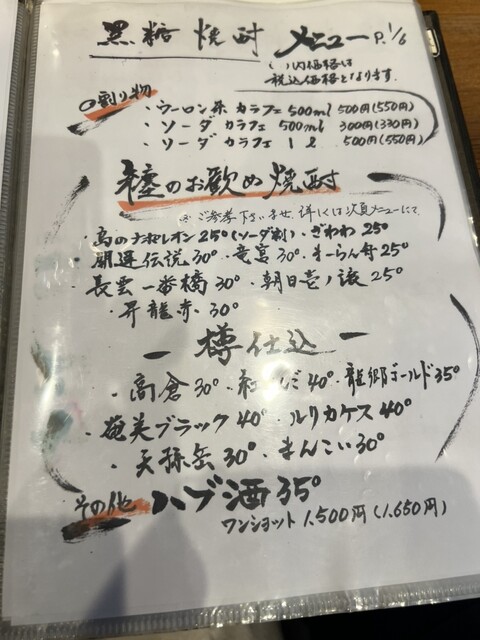 黒糖焼酎 メニュー P.1/6
( )内価格は
税込価格となります。
○割り物
・ウーロン茶 カラフェ 500ml 500円(550円)
・ソーダ カラフェ 500ml 300円(330円)
・ソーダ カラフェ 1ℓ 500円(550円)
のお歓め焼酎
ご参考下さいませ、詳しくは次頁メニューにて
・島のナポレオン25°(ソーダ割)・ざわわ 25°
・開運伝説30°・竜宮30°・まーらん舟25°
・長雲一番橋30°・朝日壱ノ譲25°
・昇龍赤30°
ー 樽仕込 ー
・高倉30°・紅さんご40°・龍郷ゴールド35°
・奄美ブラック40°・ルリカケス40°
・天孫岳30°・まんこい30°
その他 ハブ酒35°
ワンショット 1,500円(1,650円)